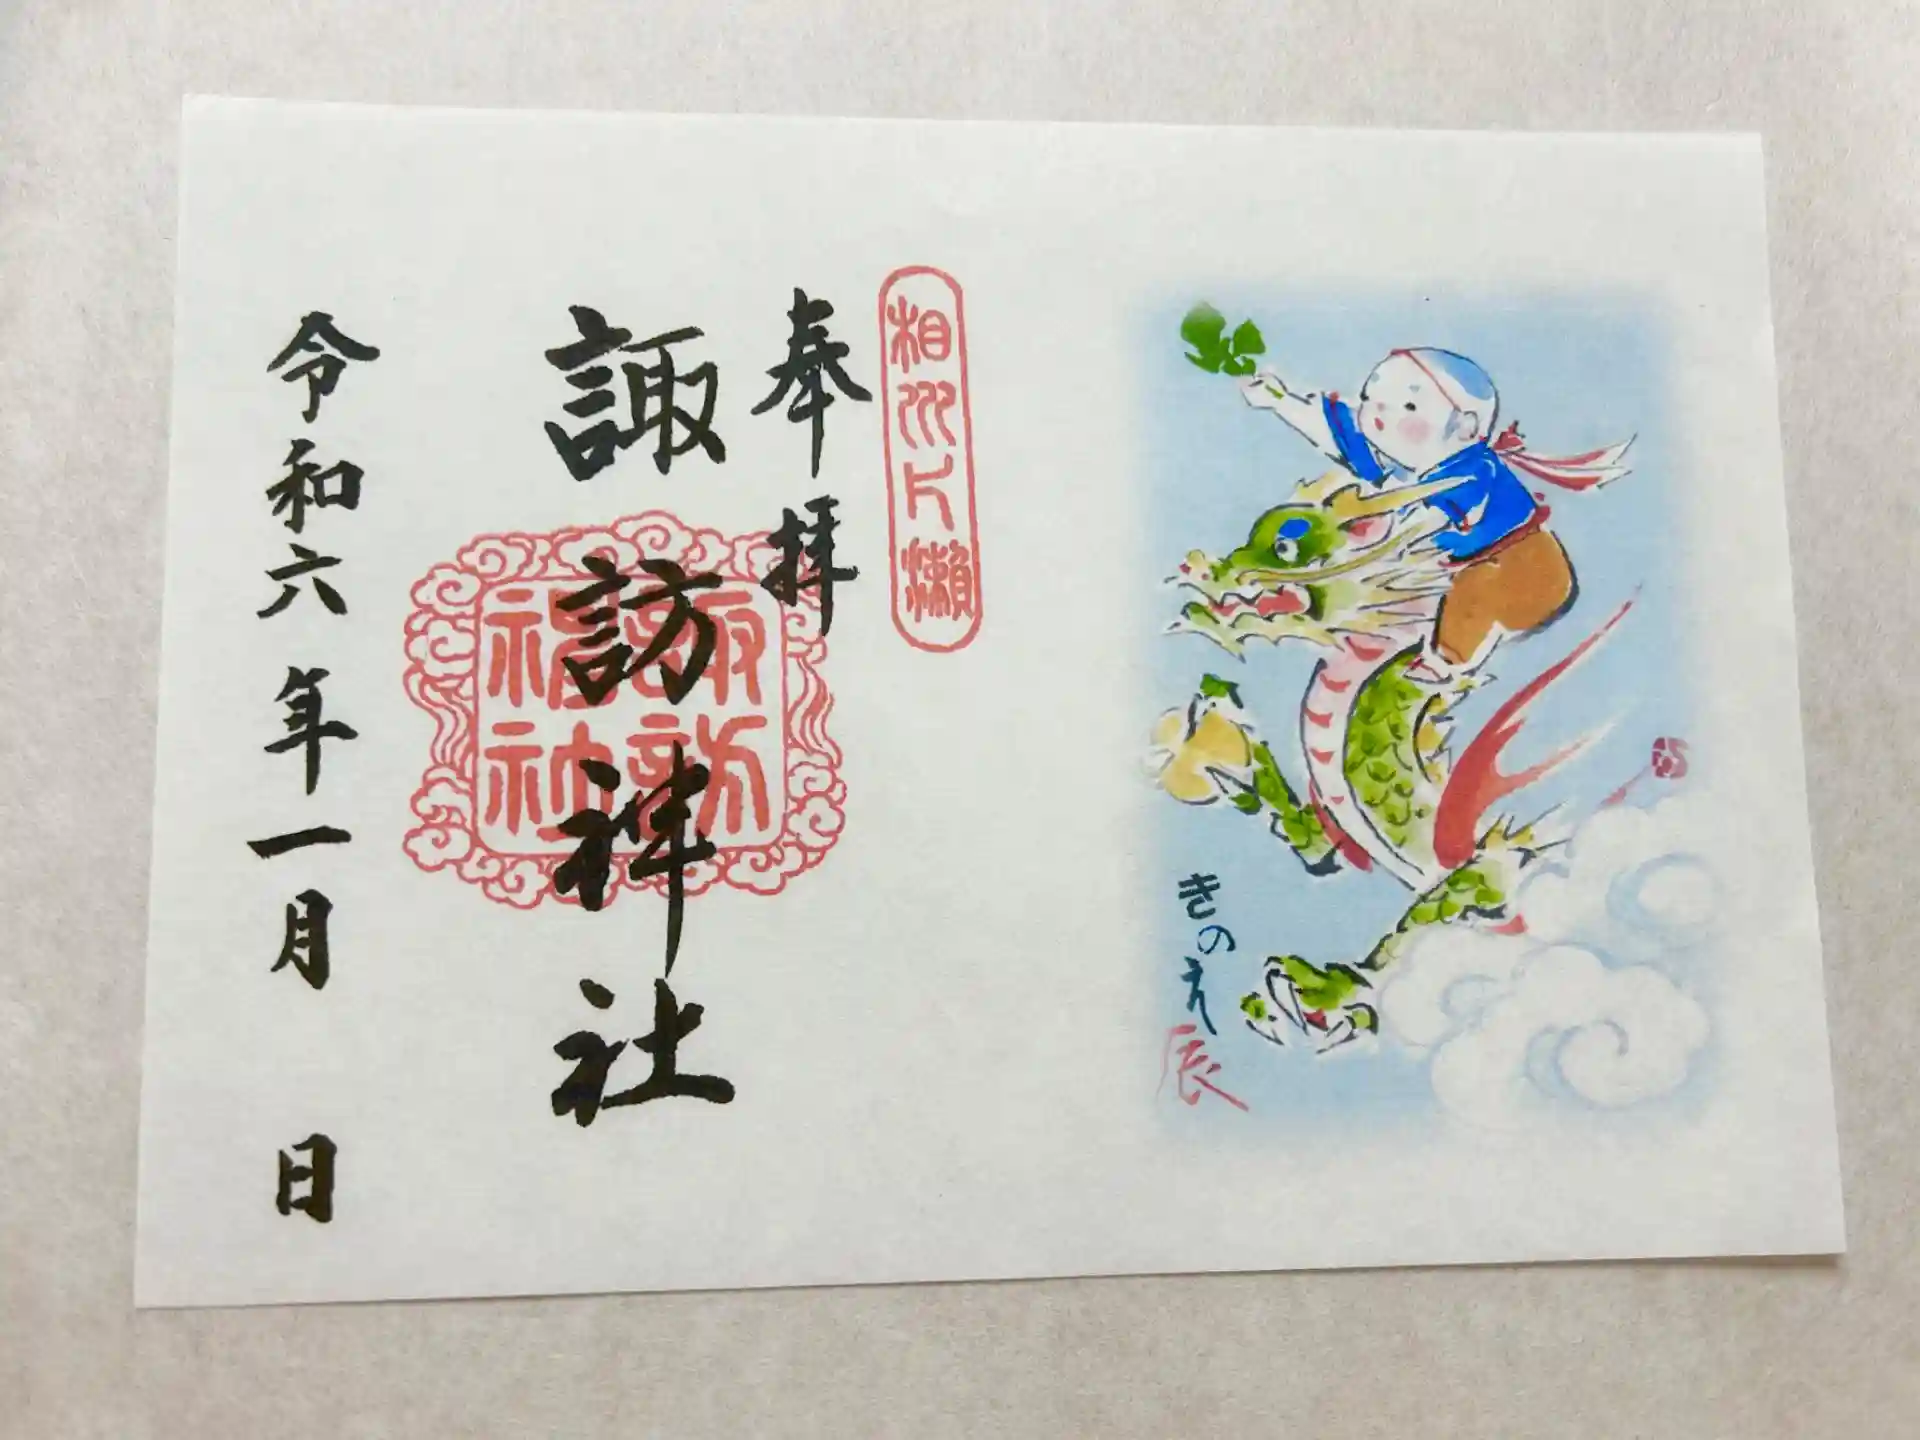 きのえ
辰
相州片瀬
奉拝
諏訪神社
諏訪神社
令和六年一月 日